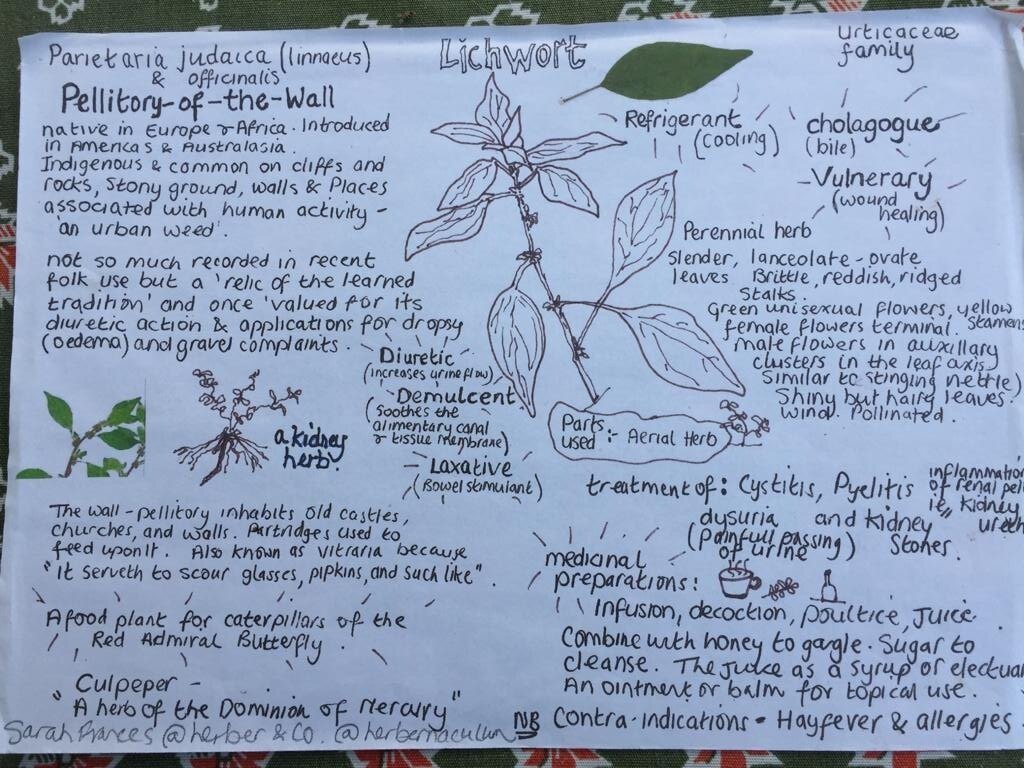 Parietaria judaica (linnaeus)
& officinalis
Pellitory-of-the-Wall
native in Europe & Africa. Introduced
in Americas & Australasia.
Indigenous & common on cliffs and
rocks, Stony ground, walls & Places
associated with human activity -
'an urban weed'.
not so much recorded in recent
folk use but a 'relic of the learned
tradition' and once 'valued for its
diuretic action & applications for dropsy
(oedema) and gravel complaints.
Lichwort
Urticaceae
family
Refrigerant
(cooling)
cholagogue
(bile)
Vulnerary
(wound
healing)
Perennial herb
Slender, lanceolate-ovate
leaves Brittle, reddish, ridged
Stalks.
Green unisexual flowers, yellow
Stamens
female flowers terminal.
male flowers in auxillary
clusters in the leaf axis
Similar to stinging nettle)
Shiny but hairy leaves.
wind Pollinated.
Diuretic
(increases urine flow)
Demulcent
(Soothes the
alimentary canal
& tissue membrane)
Laxative
(Bowel stimulant)
Parts
used :- Aerial Herb
a kidney
herb.
The wall-pellitory inhabits old castles,
churches, and walls. Partridges used to
feed upon it. Also known as vitraria because
"It serveth to scour glasses, pipkins, and such like".
A food plant for caterpillars of the
Red Admiral Butterfly.
Culpeper -
"A herb of the Dominion of Mercury"
treatment of: Cystitis, Pyelitis
inflammation
of renal pel
ie, kidney
ureth
dysuria and kidney
(Painfull passing
of urine) Stones.
medicinal
preparations:
Infusion, decoction, poultice, Juice.
Combine with honey to gargle. Sugar to
cleanse. The juice as a syrup or electua
An ointment or balm for topical use.
NB Contra-indications - Hayfever & allergies.
Sarah Frances @herber & Co. @herbernaculum